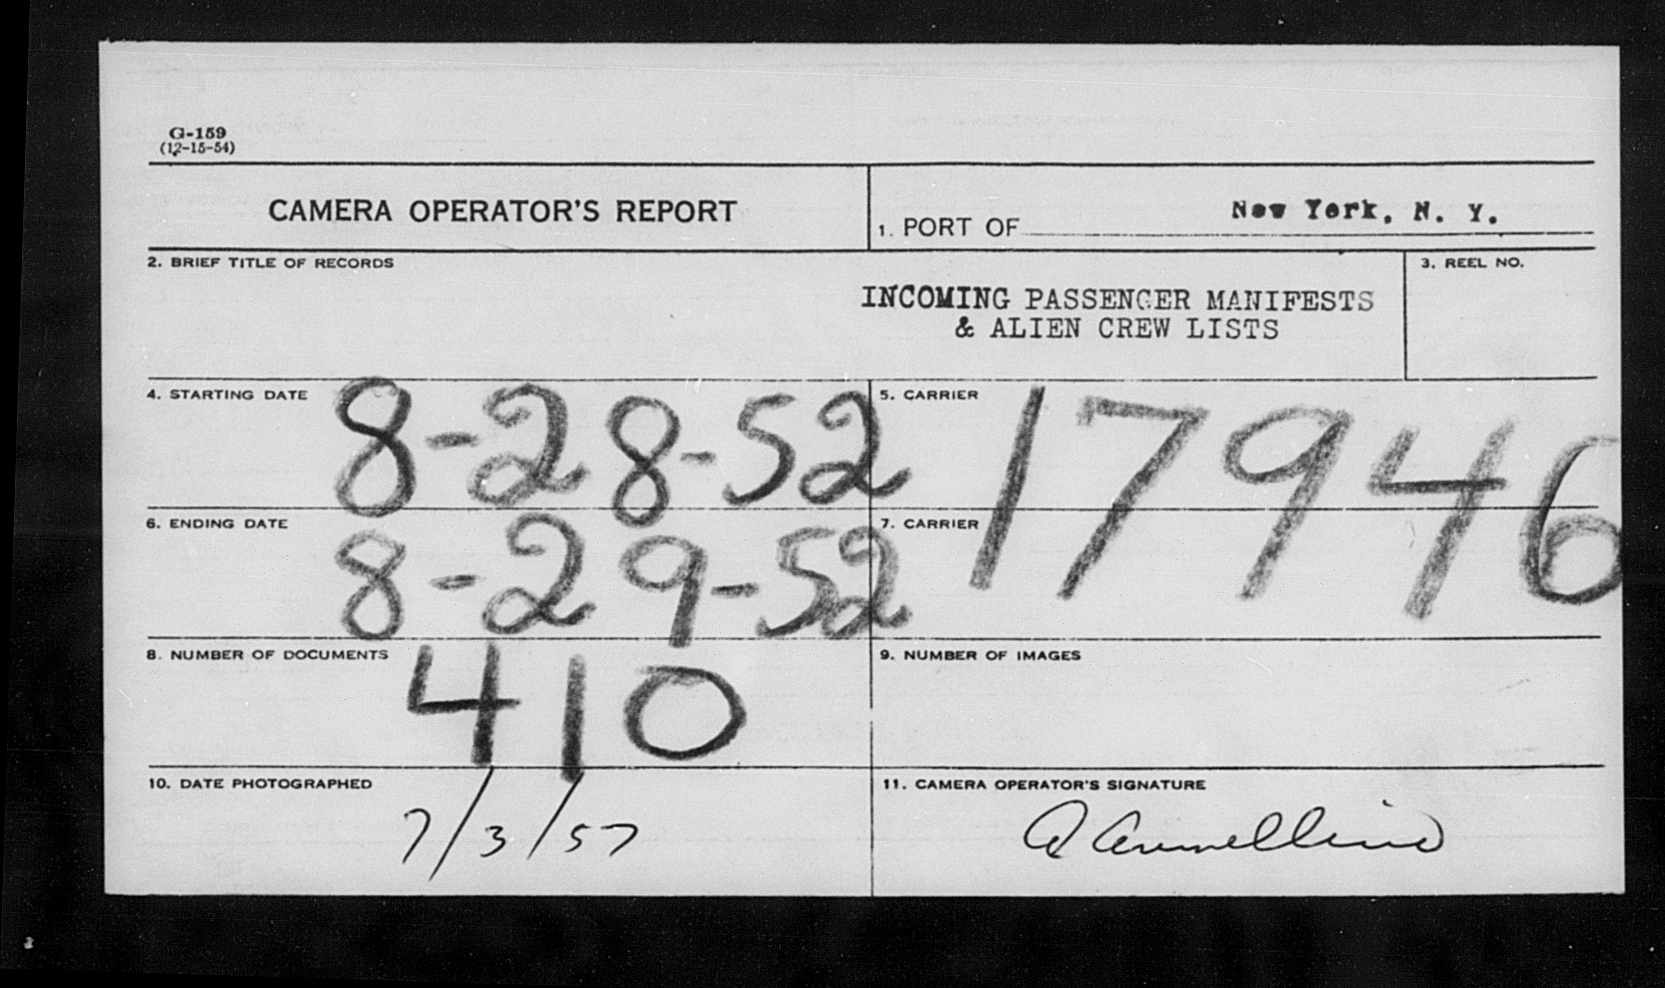 G-159
(12-15-54)
CAMERA OPERATOR'S REPORT
1. PORT OF New York, N. Y.
2. BRIEF TITLE OF RECORDS
INCOMING PASSENGER MANIFESTS
& ALIEN CREW LISTS
3. REEL NO.
4. STARTING DATE 8-28-52
5. CARRIER 17946
6. ENDING DATE 8-29-52
7. CARRIER
8. NUMBER OF DOCUMENTS 410
9. NUMBER OF IMAGES
10. DATE PHOTOGRAPHED
7/3/57
11. CAMERA OPERATOR'S SIGNATURE